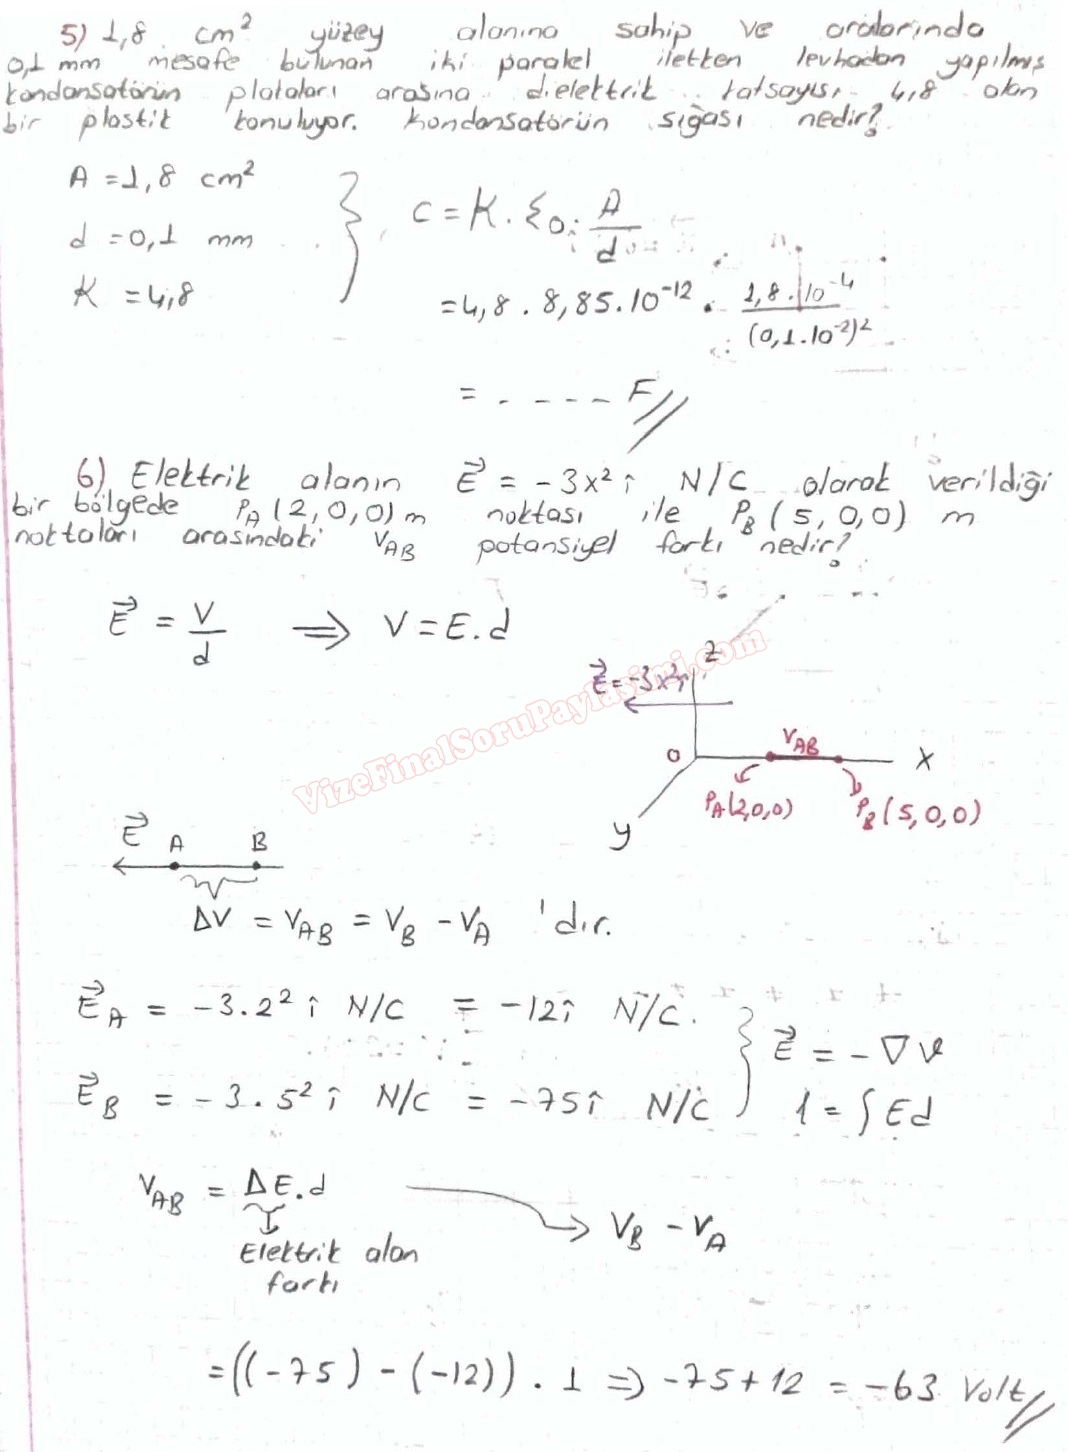 5) 1,8 cm² yüzey alanına sahip ve aralarında
0,1 mm mesafe bulunan iki paralel iletken levhadan yapılmış
kondansatörün plakaları arasına dielektrik katsayısı 4,8 olan
bir plastik konuluyor. Kondansatörün sığası nedir?
A = 1,8 cm²
d = 0,1 mm
K = 4,8
C = K . ε0 . A/d
= 4,8 . 8,85.10⁻¹² . 1,8 . 10⁻⁴ / (0,1.10⁻²)²
= . - - - - F //
6) Elektrik alanın E⃗ = -3x² î N/C olarak verildiği
bir bölgede PA(2,0,0) m noktası ile PB(5,0,0) m
noktaları arasındaki VAB potansiyel farkı nedir?
E⃗ = V/d ⇒ V = E.d
E⃗ = -3x² î
z
VizeFinalSoruPaylasimi.com
O
VAB
X
PA(2,0,0)
PB(5,0,0)
y
E⃗ A B
ΔV = VAB = VB - VA 'dır.
E⃗A = -3.2² î N/C = -12î N/C.
E⃗ = -∇V
E⃗B = -3.5² î N/C = -75î N/C
= ∫ Ed
VAB = ΔE.d → VB - VA
Elektrik alan
farkı
= ((-75) - (-12)) . 1 ⇒ -75+12 = -63 Volt //